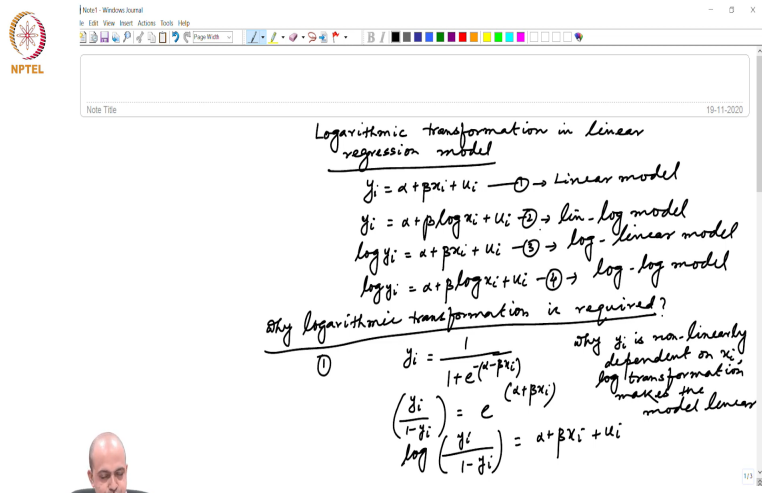 Note1 - Windows Journal
le Edit View Insert Actions Tools Help
Page Width
B I
NPTEL
Note Title
19-11-2020
Logarithmic transformation in linear
regression model
yi = α + βxi + ui — ① → Linear model
yi = α + β log xi + ui - ② → lin-log model
log yi = α + βxi + ui - ③ → log-linear model
log yi = α + β log xi + ui - ④ → log-log model
Why logarithmic transformation is required?
① yi = 1 / (1 + e^-(α-βxi))
Why yi is non-linearly
dependent on xi,
log transformation
makes the
model linear
(yi / 1-yi) = e^(α+βxi)
log (yi / 1-yi) = α + βxi + ui
1/3